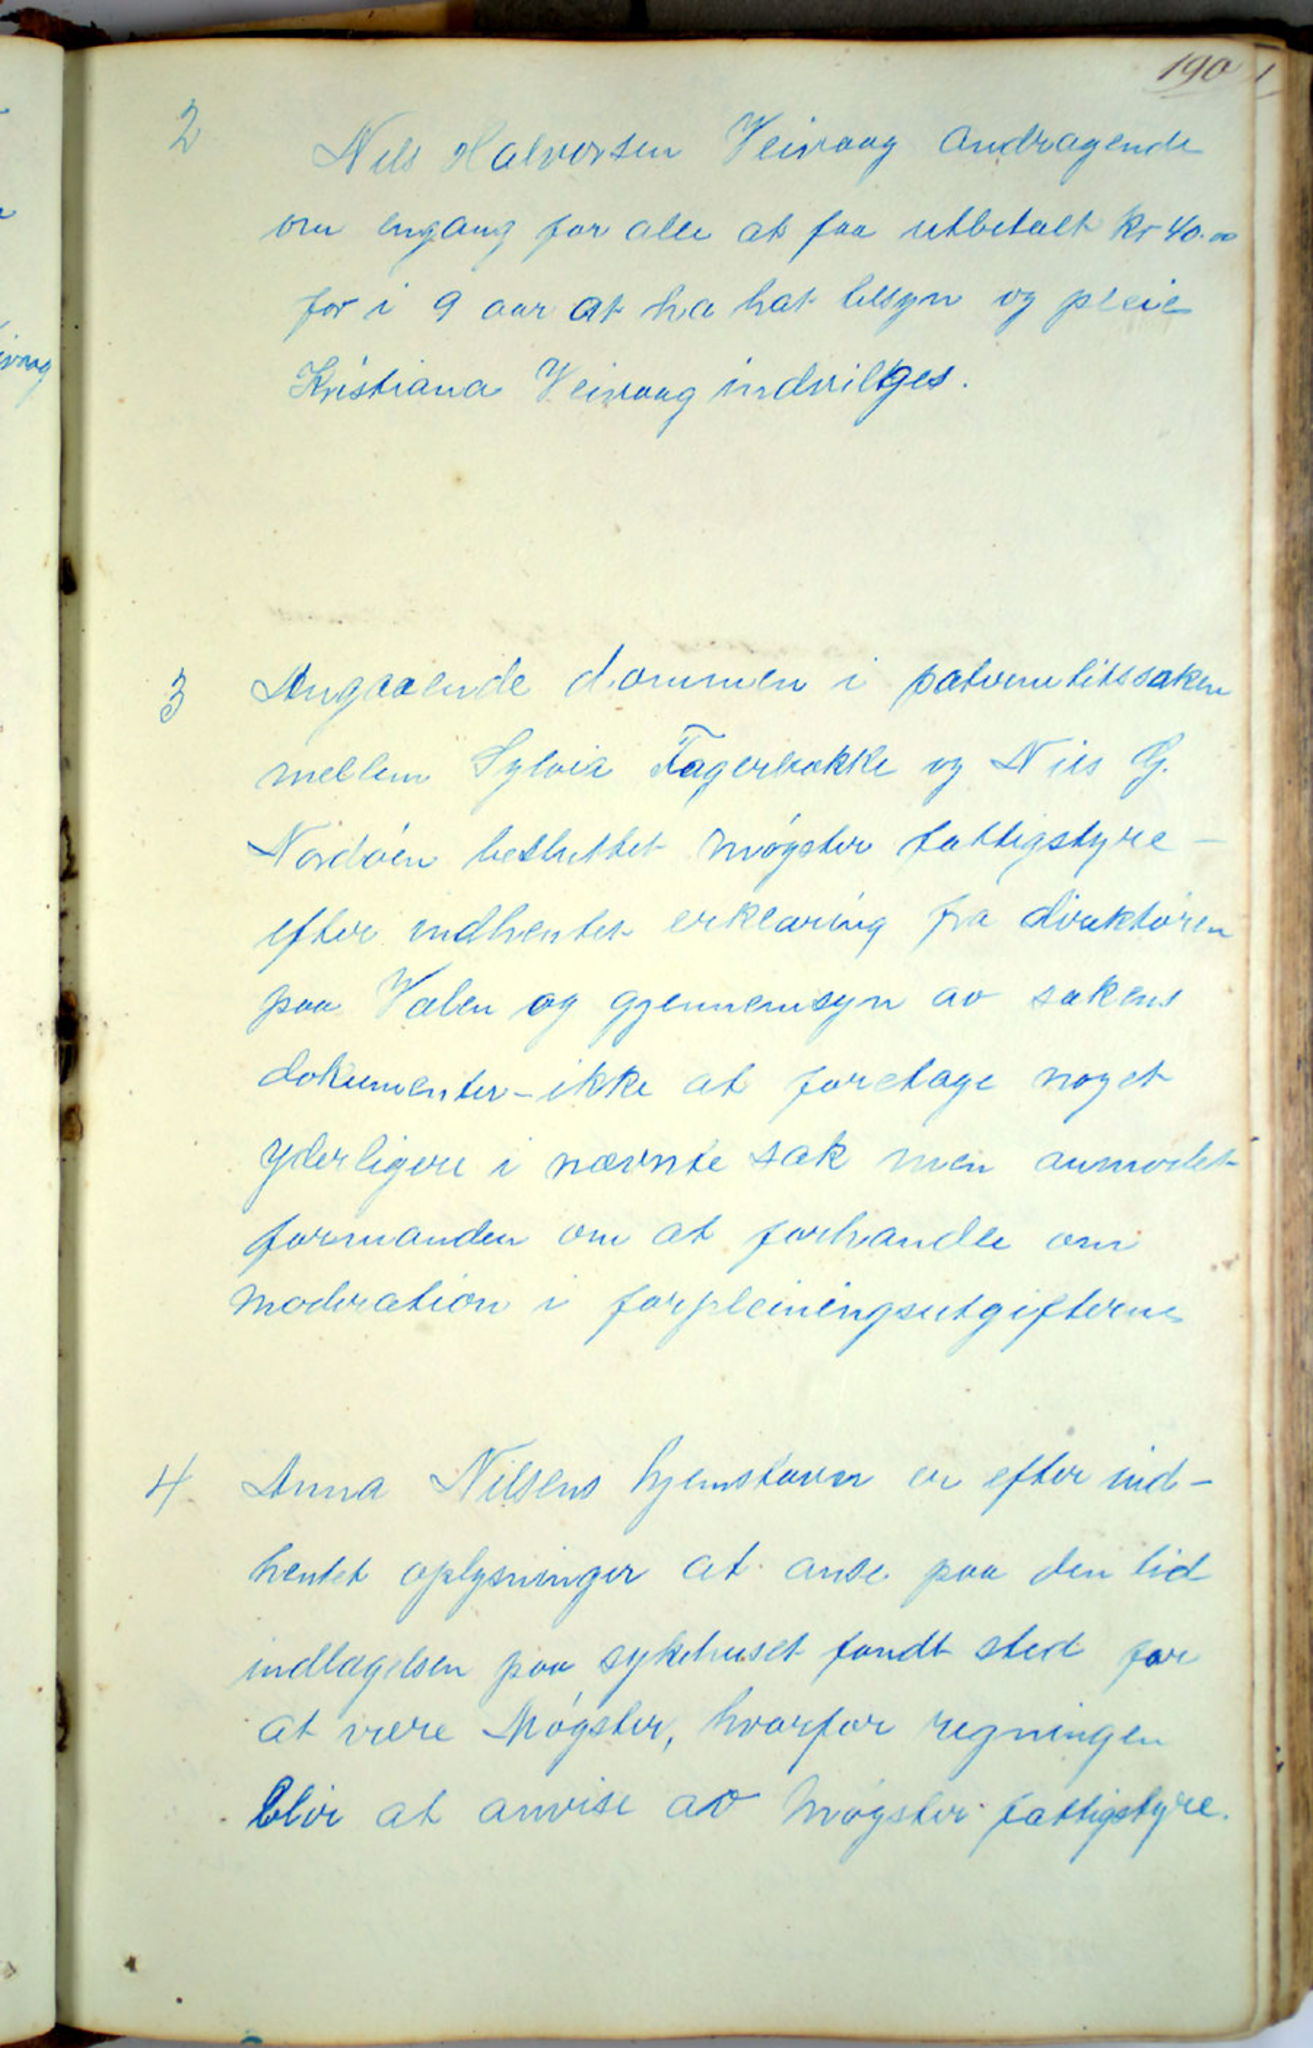 190
2
Nils Halvorsen Veivaag andragende
om engang for alle at faa utbetalt kr 40.00
for i 9 aar at ha hat tilsyn og pleie
Kristiana Veivaag indvilges.
3 Angaaende dommen i paternitetssaken
mellem Sylvia Fagerbakke og Nils G.
Nordøen besluttet Møgster fattigstyre –
efter indhentet erklæring fra direktøren
paa Valen og gjennemsyn av sakens
dokumenter – ikke at foretage noget
yderligere i nævnte sak men anmodet
formanden om at forhandle om
moderation i forpleiningsutgifterne
4 Anna Nilsens hjemstavn er efter ind-
hentet oplysninger at anse paa den tid
indlægelsen paa sykehuset fandt sted for
at være Møgster, hvorfor regningen
blir at anvise av Møgster fattigstyre.